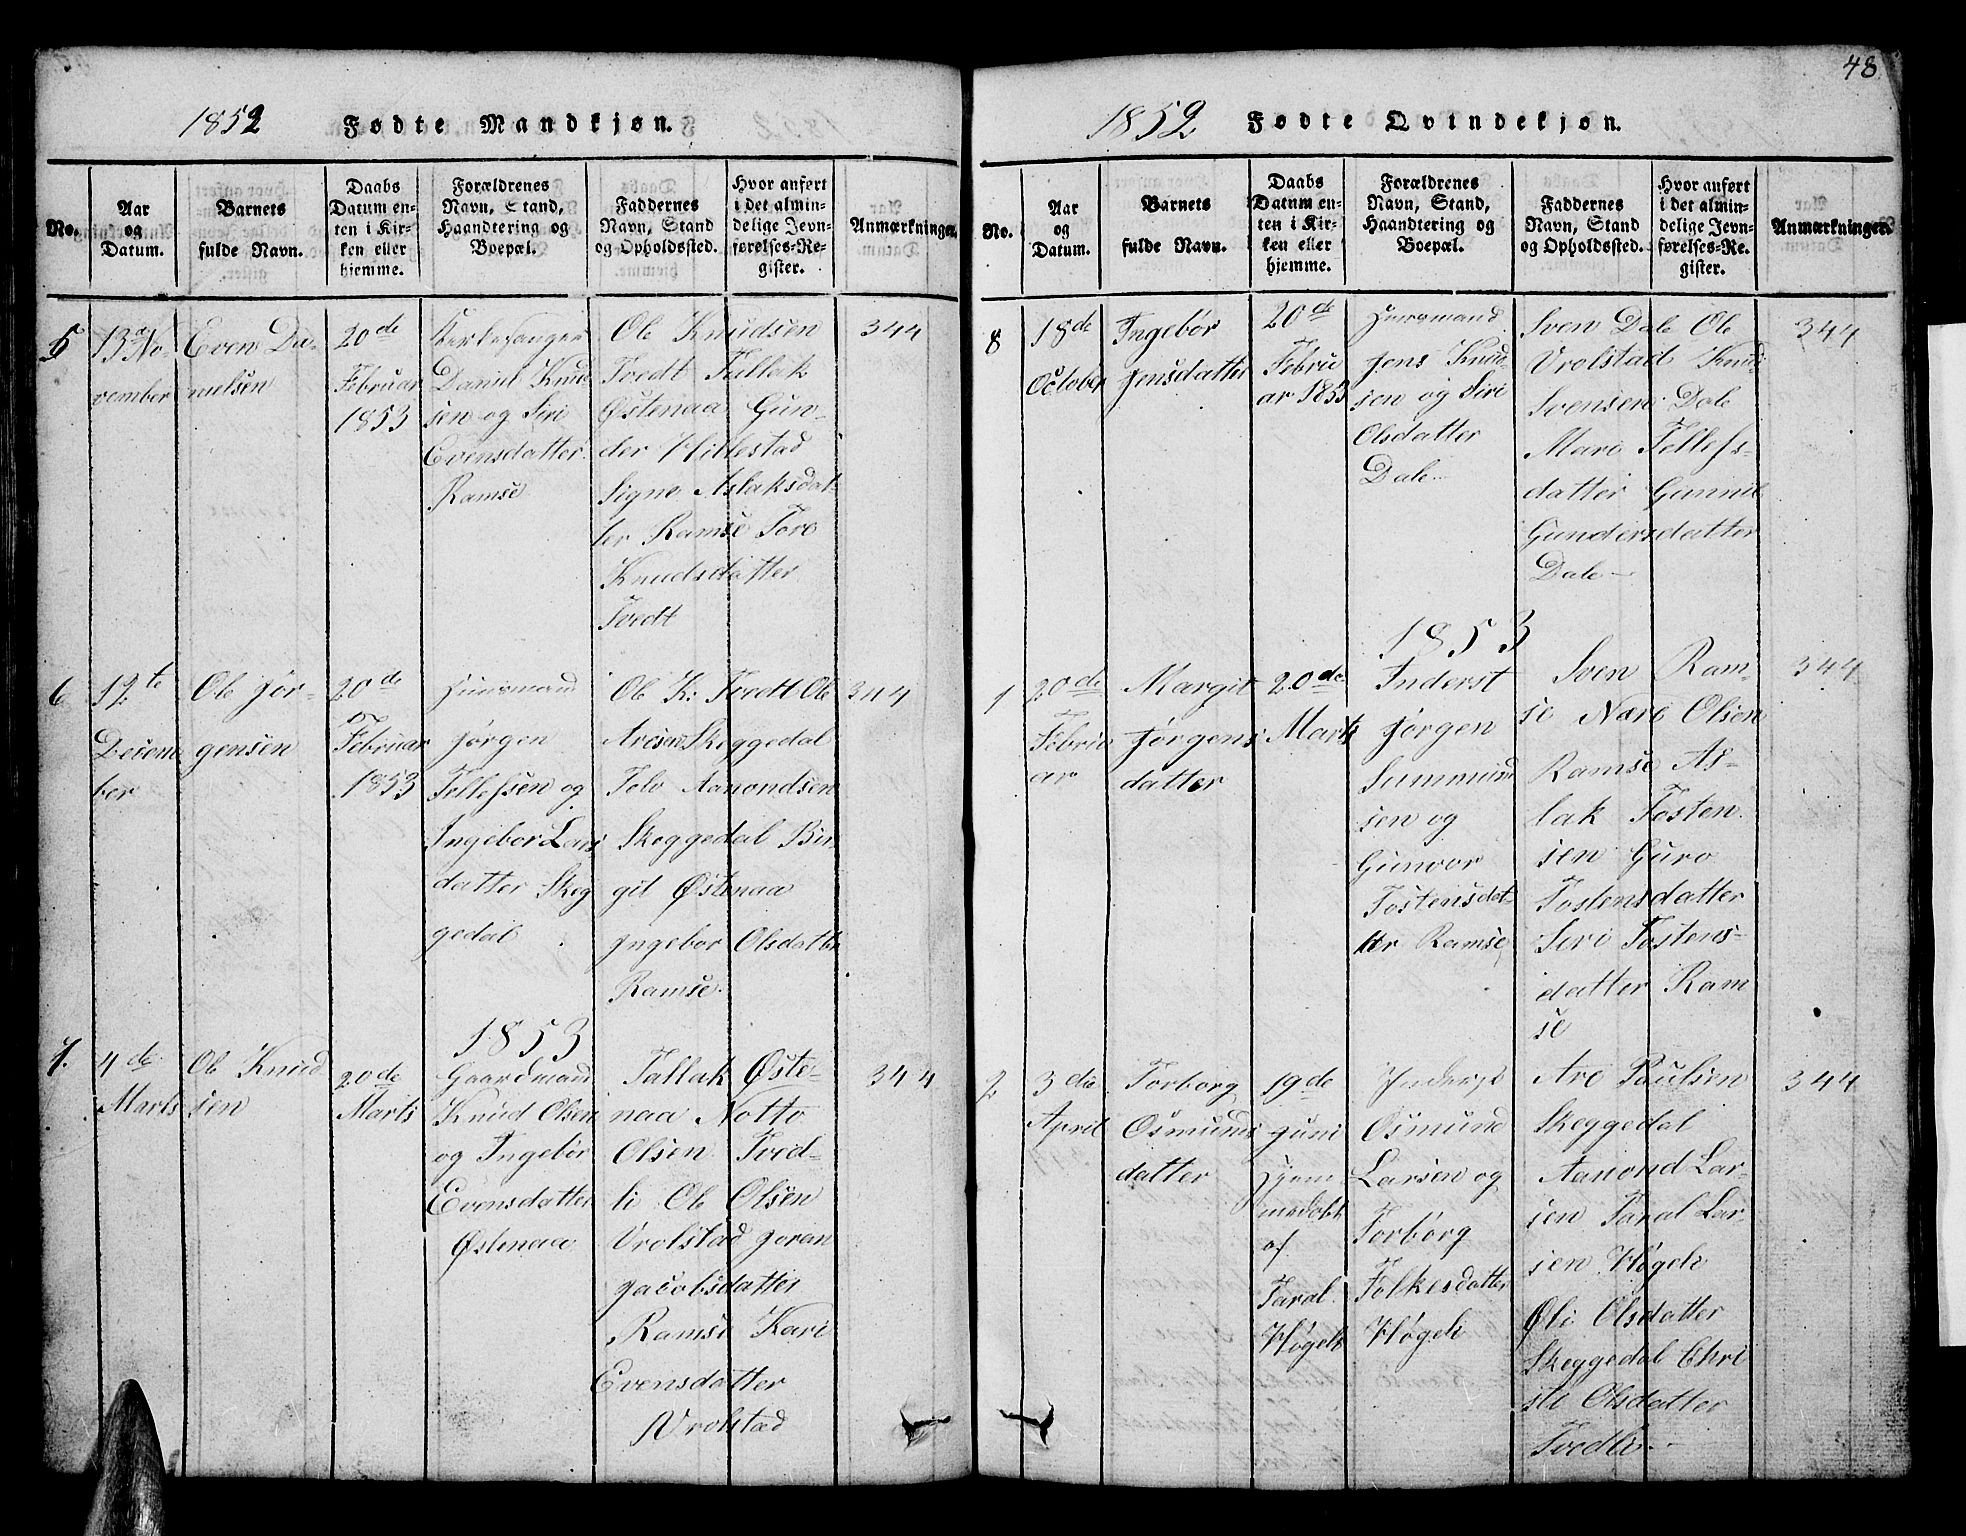 48
1852 Fødte Mandkjøn.
No.
Aar og Datum.
Barnets fulde Navn.
Daabs Datum enten i Kirken eller hjemme.
Forældrenes Navn, Stand, Haandtering og Boepæl.
Faddernes Navn, Stand og Opholdssted.
Hvor anført i det almindelige Jevnførelses-Register.
Anmærkninger.
5
13de No-
vember
Even Da-
nielsen
20de
Februar
1853
Kirkesanger
Daniel Knud
sen og Siri
Evensdatter
Ramse
Ole Knudsen
Tvedt Tallak
Østenaa Gun-
der Hillestad
Signe Aslaksdat-
ter Ramse Tore
Knudsdatter
Tvedt
344
6
12te
Decem
ber
Ole Jør-
gensen
20de
Februar
1853
Huusmand
Jørgen
Tellefsen og
Ingebor Lars
datter Skeg
gedal
Ole K: Tvedt Ole
Aresen Skeggedal
Tolv Aamondsen
Skeggedal Bir
git Østenaa
Ingebor Olsdatter
Ramse
344
1853
7.
4de
Marts
Ole Knud
sen
20de
Marts
Gaardmand
Knud Olsen
og Ingebør
Evensdatter
Østenaa
Tallak Øste-
naa Notto
Olsen Tved-
li Ole Olsen
Vrolstad Joran
Jacobsdatter
Ramse Kari
Evensdatter
Vrolstad
344
1852 Fødte Qvindekjøn.
No.
Aar og Datum.
Barnets fulde Navn.
Daabs Datum enten i Kirken eller hjemme.
Forældrenes Navn, Stand, Haandtering og Boepæl.
Faddernes Navn, Stand og Opholdssted.
Hvor anført i det almindelige Jevnførelses-Register.
Anmærkninger.
8
18de
October
Ingebør
Jensdatter
20de
Febru
ar 1853
Huusmand
Jens Knud-
sen og Siri
Olsdatter
Dale
Sven Dale Ole
Vrolstad Knud
Svensen Dale
Mari Tellefs-
datter Gunnil
Gundersdatter
Dale
344
1853
1
20de
Febru
ar
Margit
Jørgens
datter
20de
Marts
Inderst
Jørgen
Summund
sen og
Gunvor
Tostensdat-
ter Ramse
Sven Ram-
se Nære Olsen
Ramse As-
lak Tosten
sen Guro
Tostensdatter
Seri Tostens-
datter Ram
se
344
2
3die
April
Torborg
Osmunds
datter
19de
Juni
Hjem
medøbt
af
Taral
Høgeli
Inderst
Osmund
Larsen og
Torborg
Folkesdatter
Høgeli
Are Paulsen
Skeggedal
Aanond Lar-
sen Taral Lar-
sen Høgeli
Øli Olsdatter
Skeggedal Chri
sti Olsdatter
Tvedli
344